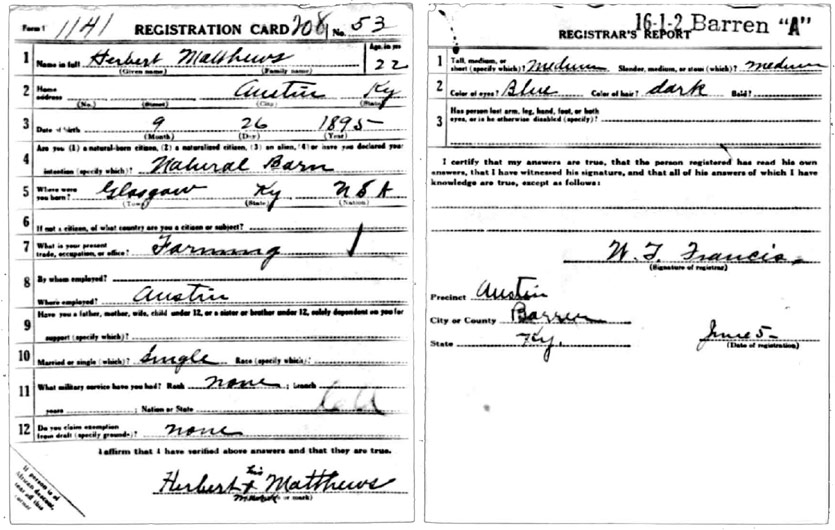 Form 1 1141 REGISTRATION CARD 208 No. 53
1 Name in full Herbert Matthews Age, in yrs 22
(Given name) (Family name)
2 Home address Austin Ky
(No.) (Street) (City) (State)
3 Date of birth 9 26 1895
(Month) (Day) (Year)
Are you (1) a natural-born citizen, (2) a naturalized citizen, (3) an alien, (4) or have you declared your
4 intention (specify which)? Natural Born
5 Where were you born? Glasgow Ky USA
(Town) (State) (Nation)
6 If not a citizen, of what country are you a citizen or subject?
7 What is your present trade, occupation, or office? Farming
8 By whom employed?
Where employed? Austin
9 Have you a father, mother, wife, child under 12, or a sister or brother under 12, solely dependent on you for
support (specify which)?
10 Married or single (which)? Single Race (specify which)?
11 What military service have you had? Rank none ; branch
years ; Nation or State
12 Do you claim exemption from draft (specify grounds)? none
I affirm that I have verified above answers and that they are true.
his
Herbert x Matthews
mark or mark)
If person is of
African descent,
tear off this
corner
16-1-2 Barren "A"
REGISTRAR'S REPORT
1 Tall, medium, or short (specify which)? Medium Slender, medium, or stout (which)? medium
2 Color of eyes? Blue Color of hair? dark Bald?
3 Has person lost arm, leg, hand, foot, or both
eyes, or is he otherwise disabled (specify)?
I certify that my answers are true, that the person registered has read his own
answers, that I have witnessed his signature, and that all of his answers of which I have
knowledge are true, except as follows:
W. T. Francis
(Signature of registrar)
Precinct Austin
City or County Barren
State Ky. June 5
(Date of registration)